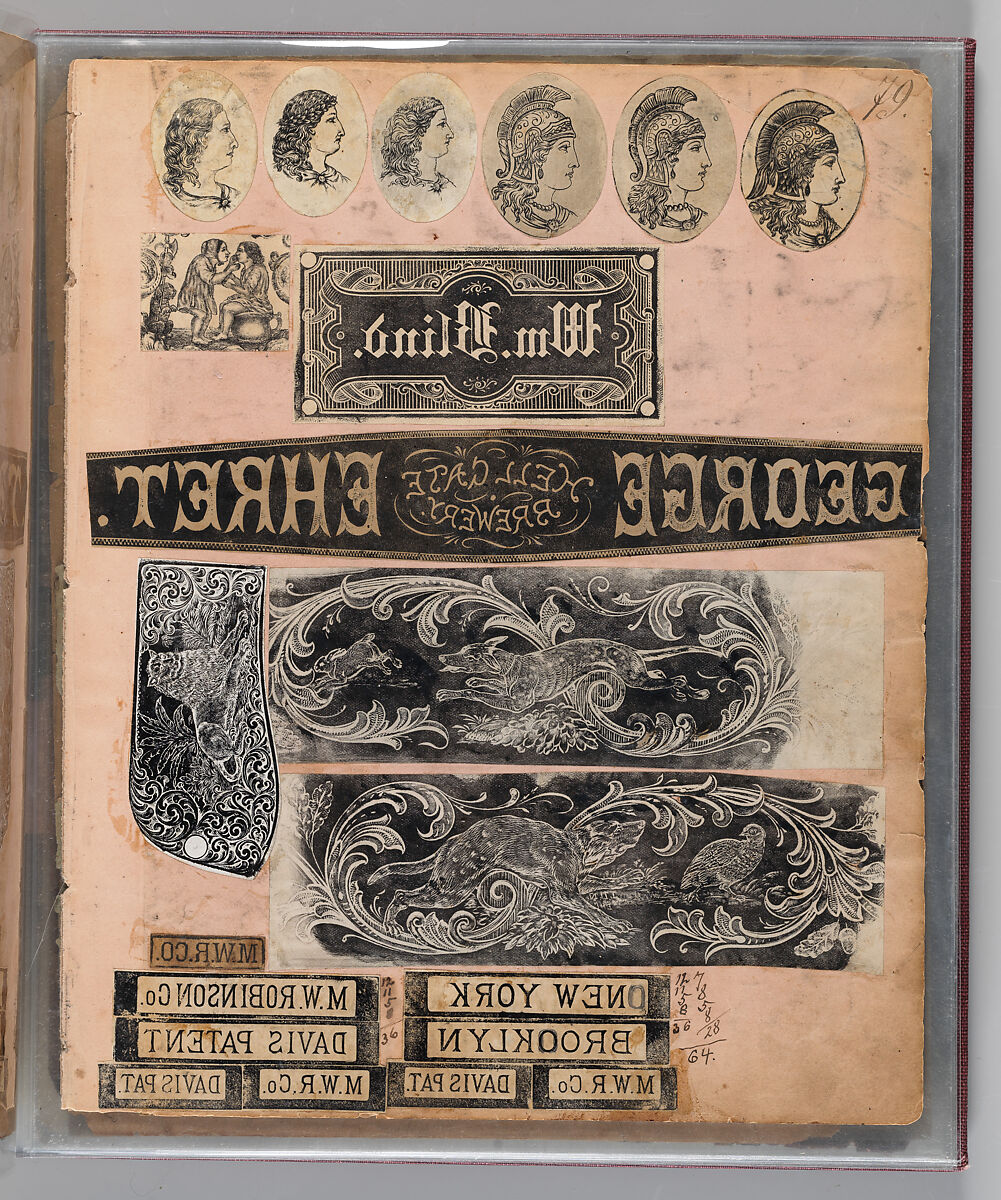 79.
Wm. Blind.
GEORGE HELL GATE BREWERY. EHRET.
M.W.R.CO.
M.W.ROBINSON Co.
NEW YORK
DAVIS PATENT
BROOKLYN
DAVIS PAT.
M.W.R.Co.
DAVIS PAT.
M.W.R.Co.
12
11
5
8
36
12
12
5
8
36
7
8
5
8
28
64.